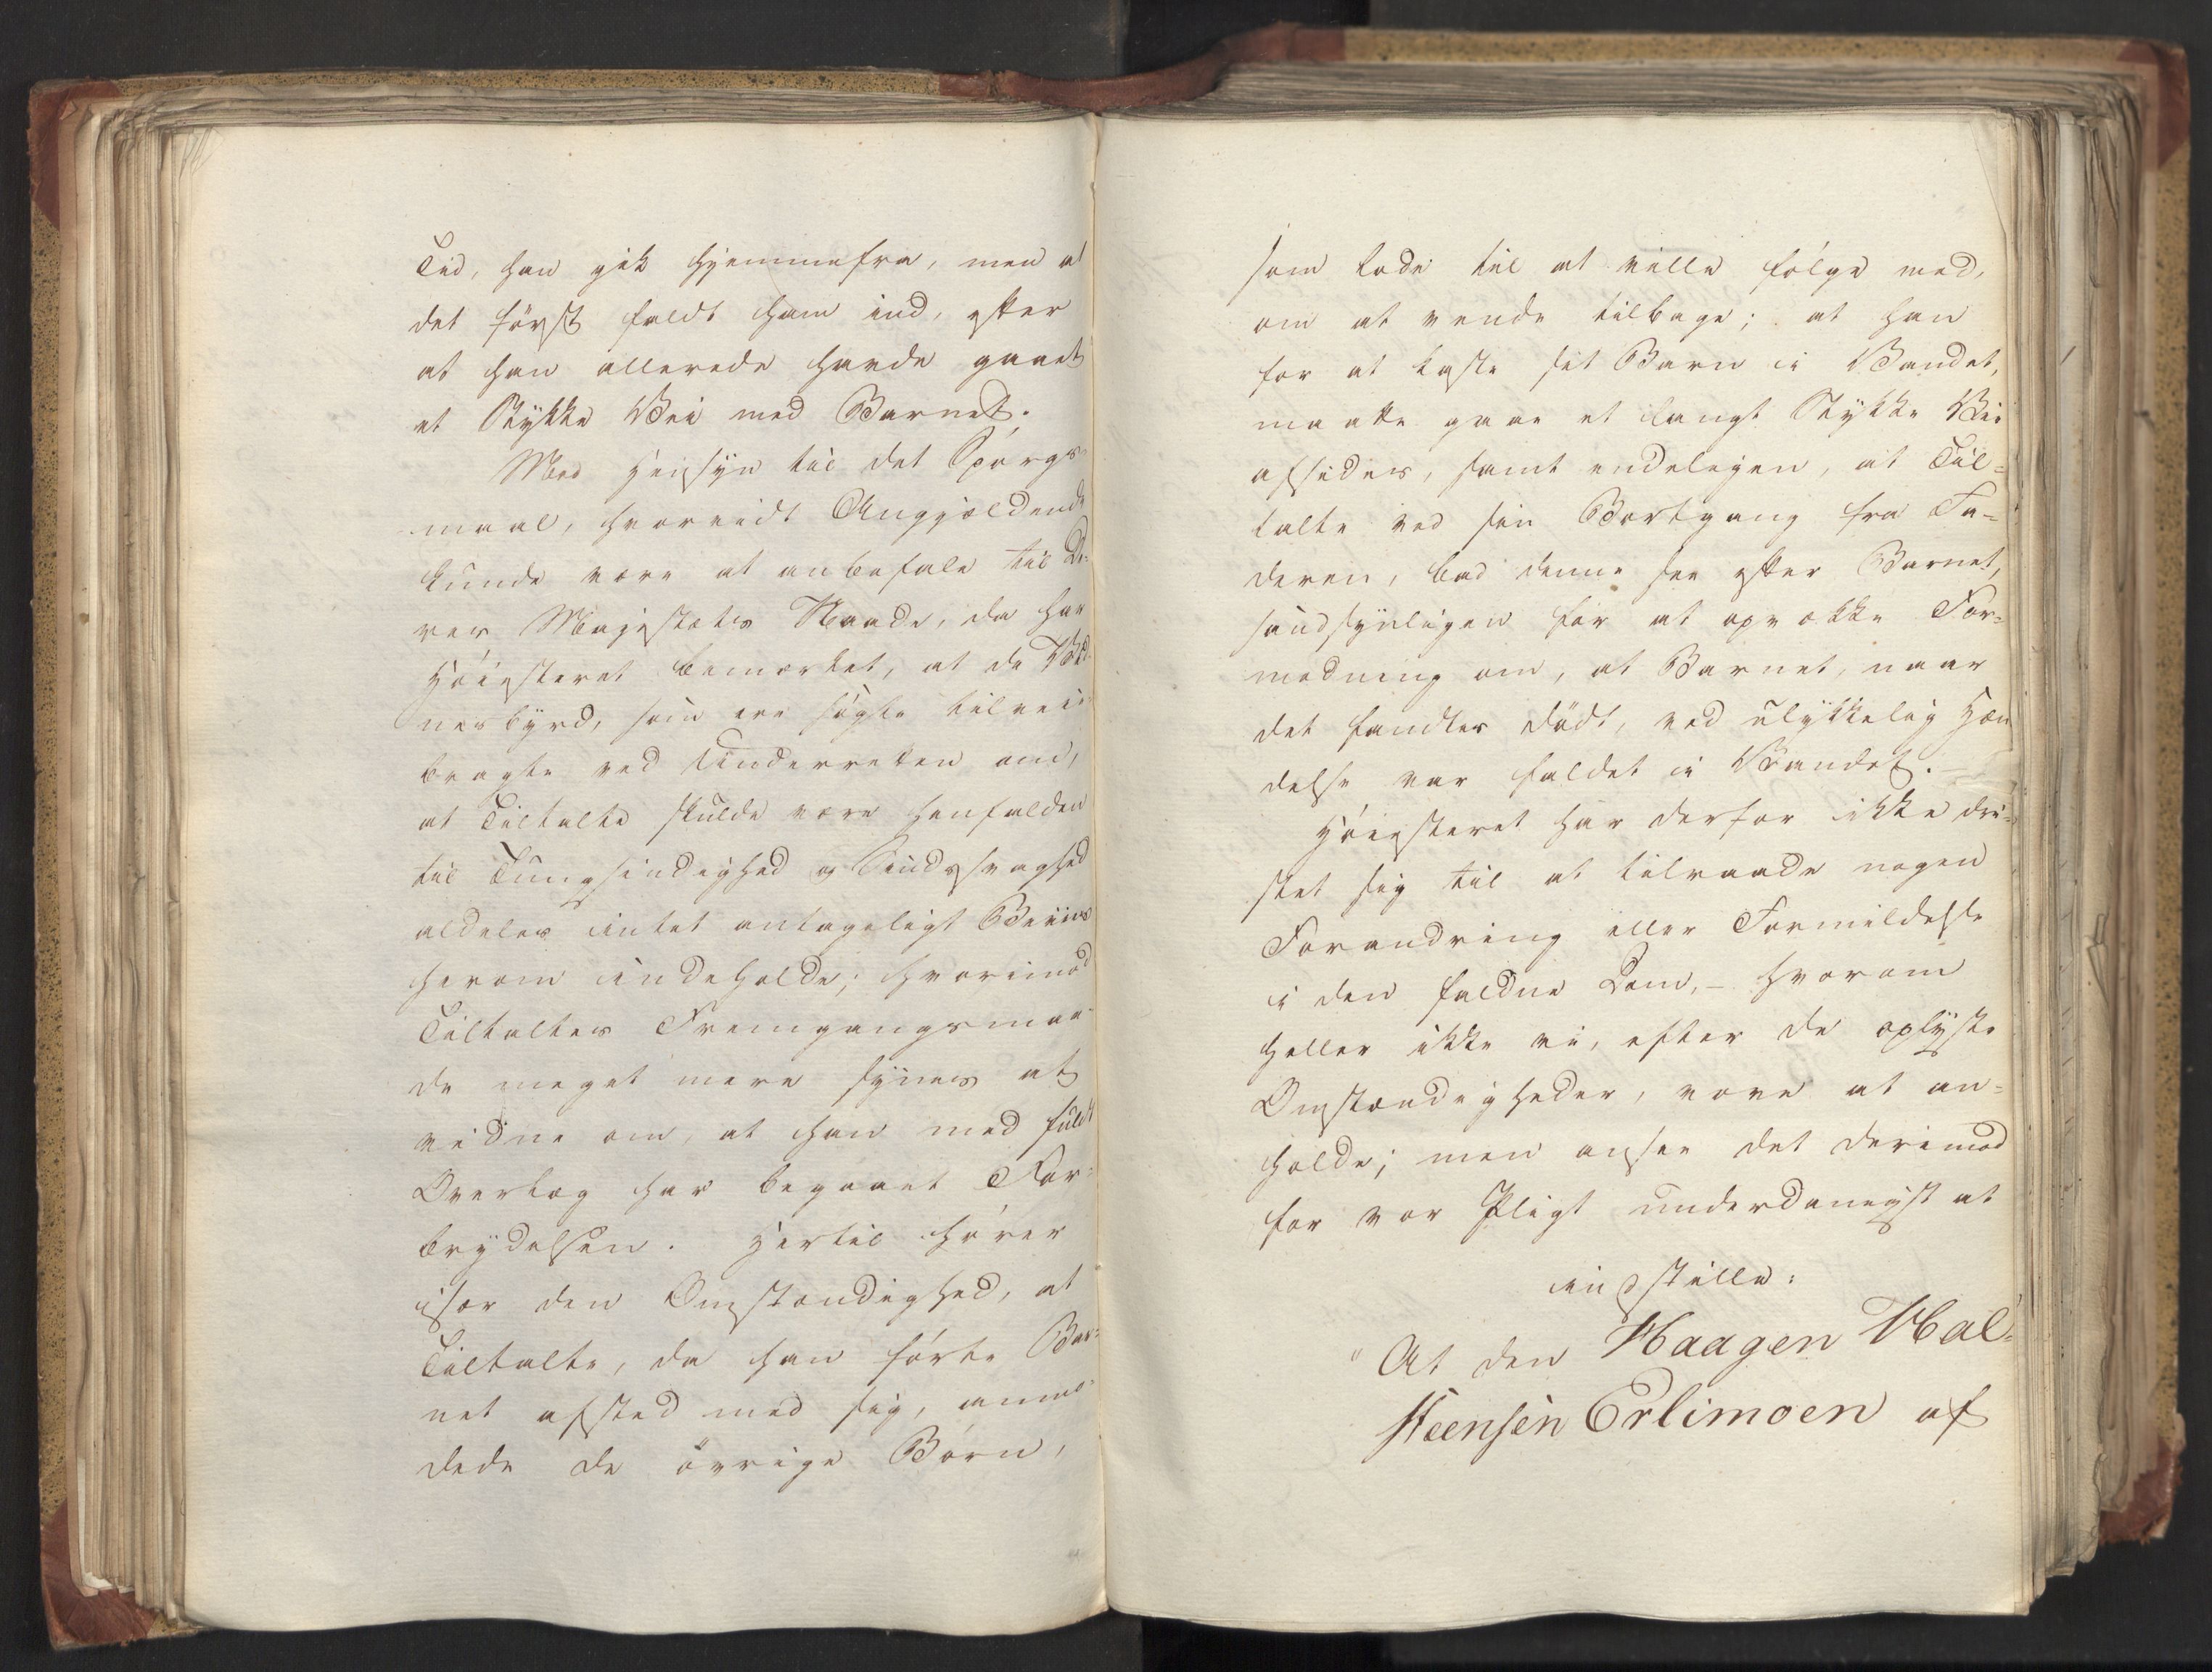 Tid, han gik hjemmefra, men at
det først faldt ham ind, efter
at han allerede havde gaaet
et Stykke Vei med Barnet.
Med Hensyn til det Spørgs-
maal, hvorvidt Angjældende
kunde være at anbefale til De-
res Majestæts Naade, da har
Høiesteret bemærket, at de Vid-
nesbyrd, som ere søgte tilveie-
bragte ved Underretten om,
at Tiltalte skulde være henfalden
til Tungsindighed og Sindssvaghed
aldeles intet antageligt Beviis
herom indeholde; hvorimod
Tiltaltes Fremgangsmaa-
de meget mere synes at
vidne om, at han med fuldt
Overlæg har begaaet For-
brydelsen. Hertil hører
især den Omstændighed, at
Tiltalte, da han førte Bar-
net afsted med sig, anmo-
dede de øvrige Børn,
som lode til at ville følge med,
om at vende tilbage; at han
for at kaste sit Barn i Vandet,
maatte gaae et langt Stykke Vei
afsides, samt endeligen, at Til-
talte ved sin Bortgang fra Fa-
deren, bad denne see efter Barnet,
sandsynligen for at opvække For-
modning om, at Barnet, naar
det fandtes dødt, ved ulykkelig Hæn-
delse var faldet i Vandet. –
Høiesteret har derfor ikke dri-
stet sig til at tilraade nogen
Forandring eller Formildelse
i den faldne Dom, – hvorom
heller ikke vi, efter de oplyste
Omstændigheder, vove at an-
holde; men ansee det derimod
for vor Pligt underdanigst at
indstille:
"At den Haagen Hal-
steensen Erlimoen af